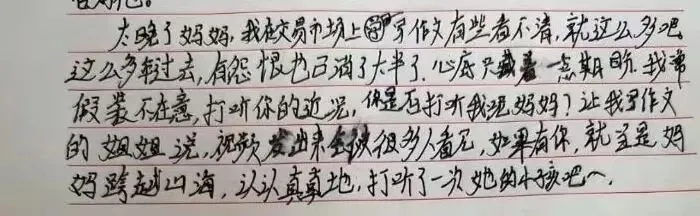 太晚了妈妈，我在交易市场上写作文有些看不清，就这么多吧
这么多年过去，有怨恨也已消了大半了，心底只藏着一点期盼，我常
假装不在意，打听你的近况，你是否打听我呢妈妈？让我写作文
的姐姐说，视频发出来会被很多人看见，如果有你，就当是妈
妈跨越山海，认认真真地，打听了一次她的小孩吧～